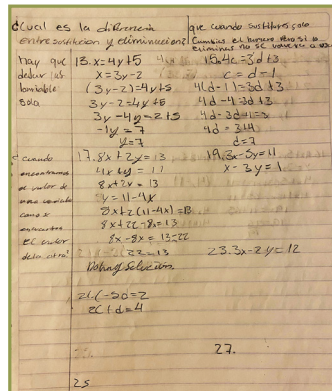 ¿Cual es la diferencia
entre sustitucion y eliminacion?
que cuando sustituyes solo
Cambias el numero pero si lo
eliminas no se vuelve a
hay que
dejar las
variable
sola
13. x = 4y + 5
x = 3y - 2
(3y - 2) = 4y + 5
3y - 2 = 4y + 5
3y - 4y = 2 + 5
-1y = 7
y = 7
15. 4c = 3d + 3
c = d - 1
4(d - 1) = 3d + 3
4d - 4 = 3d + 3
4d - 3d = 4 + 3
4d = 3+4
d = 7
cuando
encontramos
el valor de
una variable
como x
encuentras
el valor
de la otra
17. 8x + 2y = 13
4x + y = 11
8x + 2y = 13
y = 11 - 4x
8x + 2(11 - 4x) = 13
8x + 22 - 8x = 13
8x - 8x = 13 - 22
22 = 13
No hay Solucion
19. 3x - 5y = 11
x - 3y = 1
21. C - 5d = 2
2C + d = 4
23. 3x - 2y = 12
25
27.